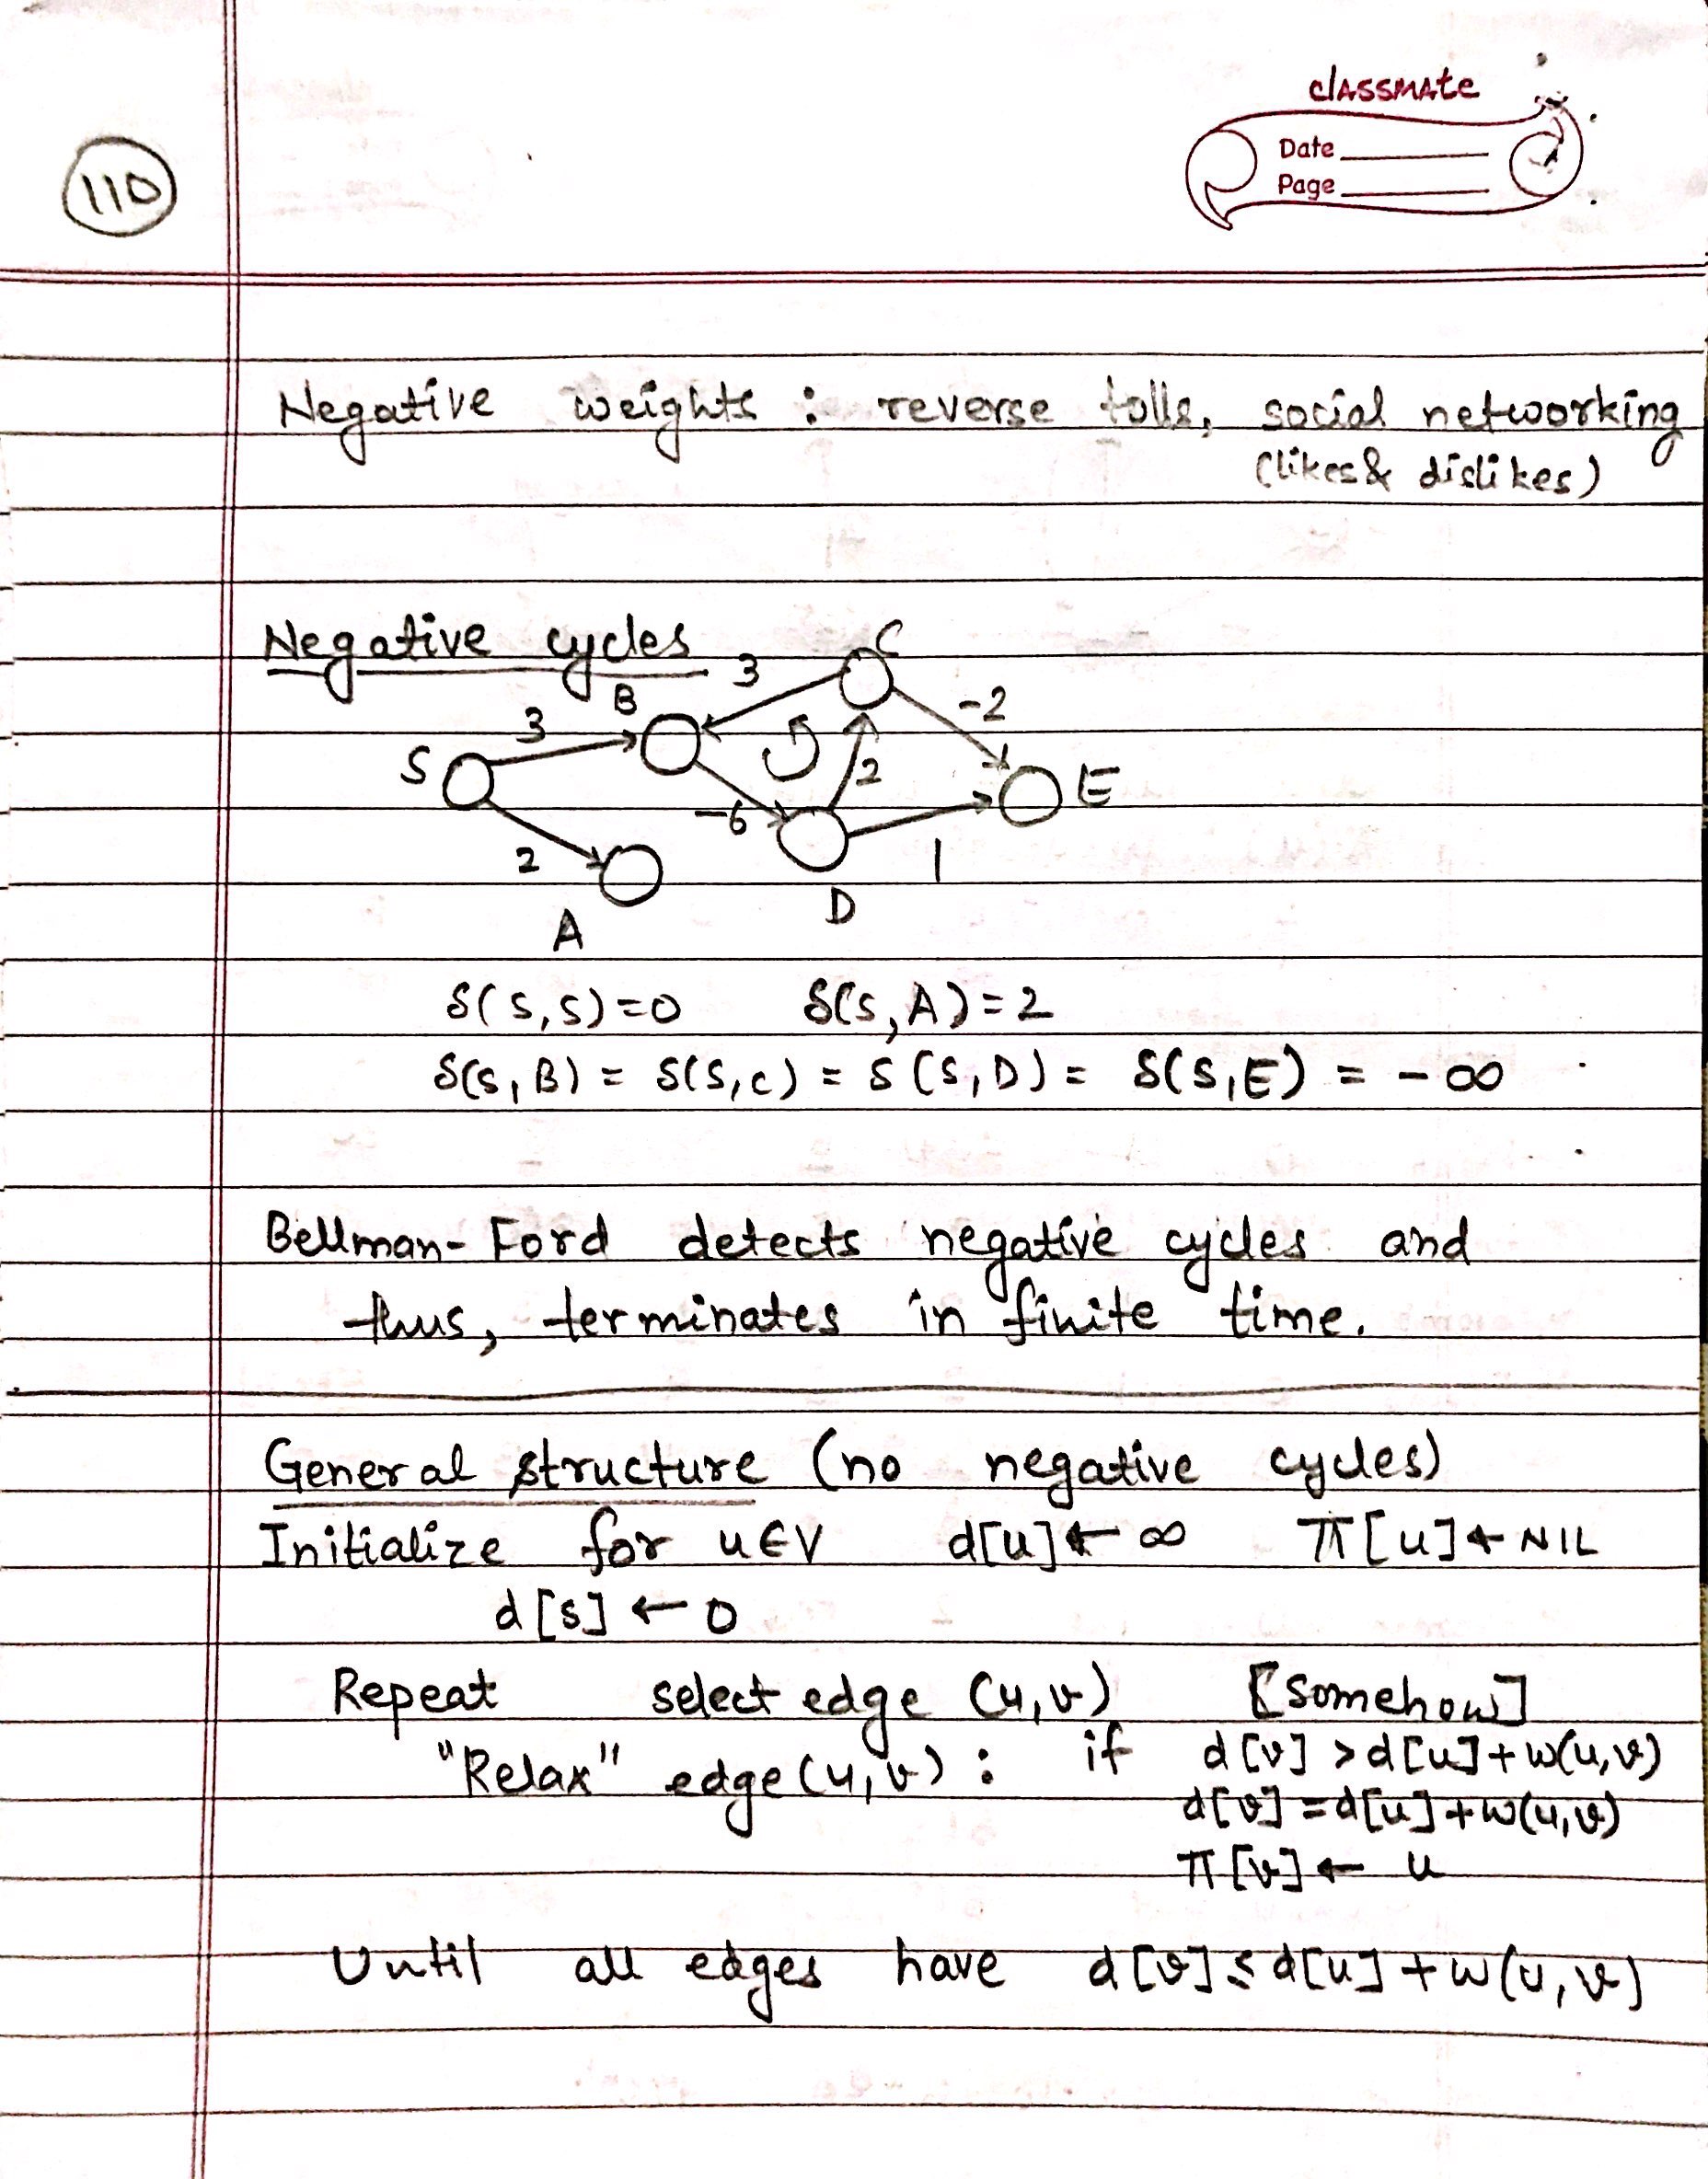 classmate
Date
Page
110
Negative weights : reverse tolls, social networking
(likes & dislikes)
Negative cycles
C
3
B
-2
3
S
2
E
-6
2
1
D
A
δ(s,s)=0 δ(s,A)=2
δ(s,B) = δ(s,c) = δ(s,D) = δ(s,E) = -∞
Bellman-Ford detects negative cycles and
thus, terminates in finite time.
General structure (no negative cycles)
Initialize for u∈V d[u]← ∞ π[u]← NIL
d[s] ← 0
Repeat select edge (u,v) [somehow]
"Relax" edge(u,v) : if d[v] > d[u]+w(u,v)
d[v] = d[u]+w(u,v)
π[v] ← u
Until all edges have d[v] ≤ d[u] + w(u,v)